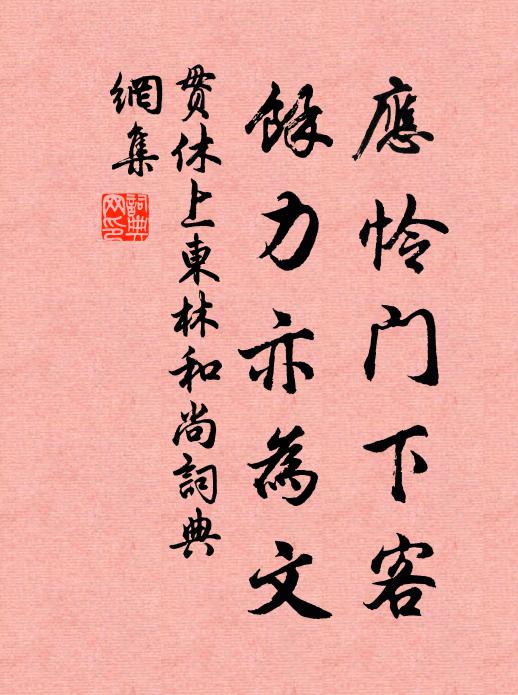 應怜门下客
餘力亦為文
贯休上東林和尚詞典
網集
詞典
网印